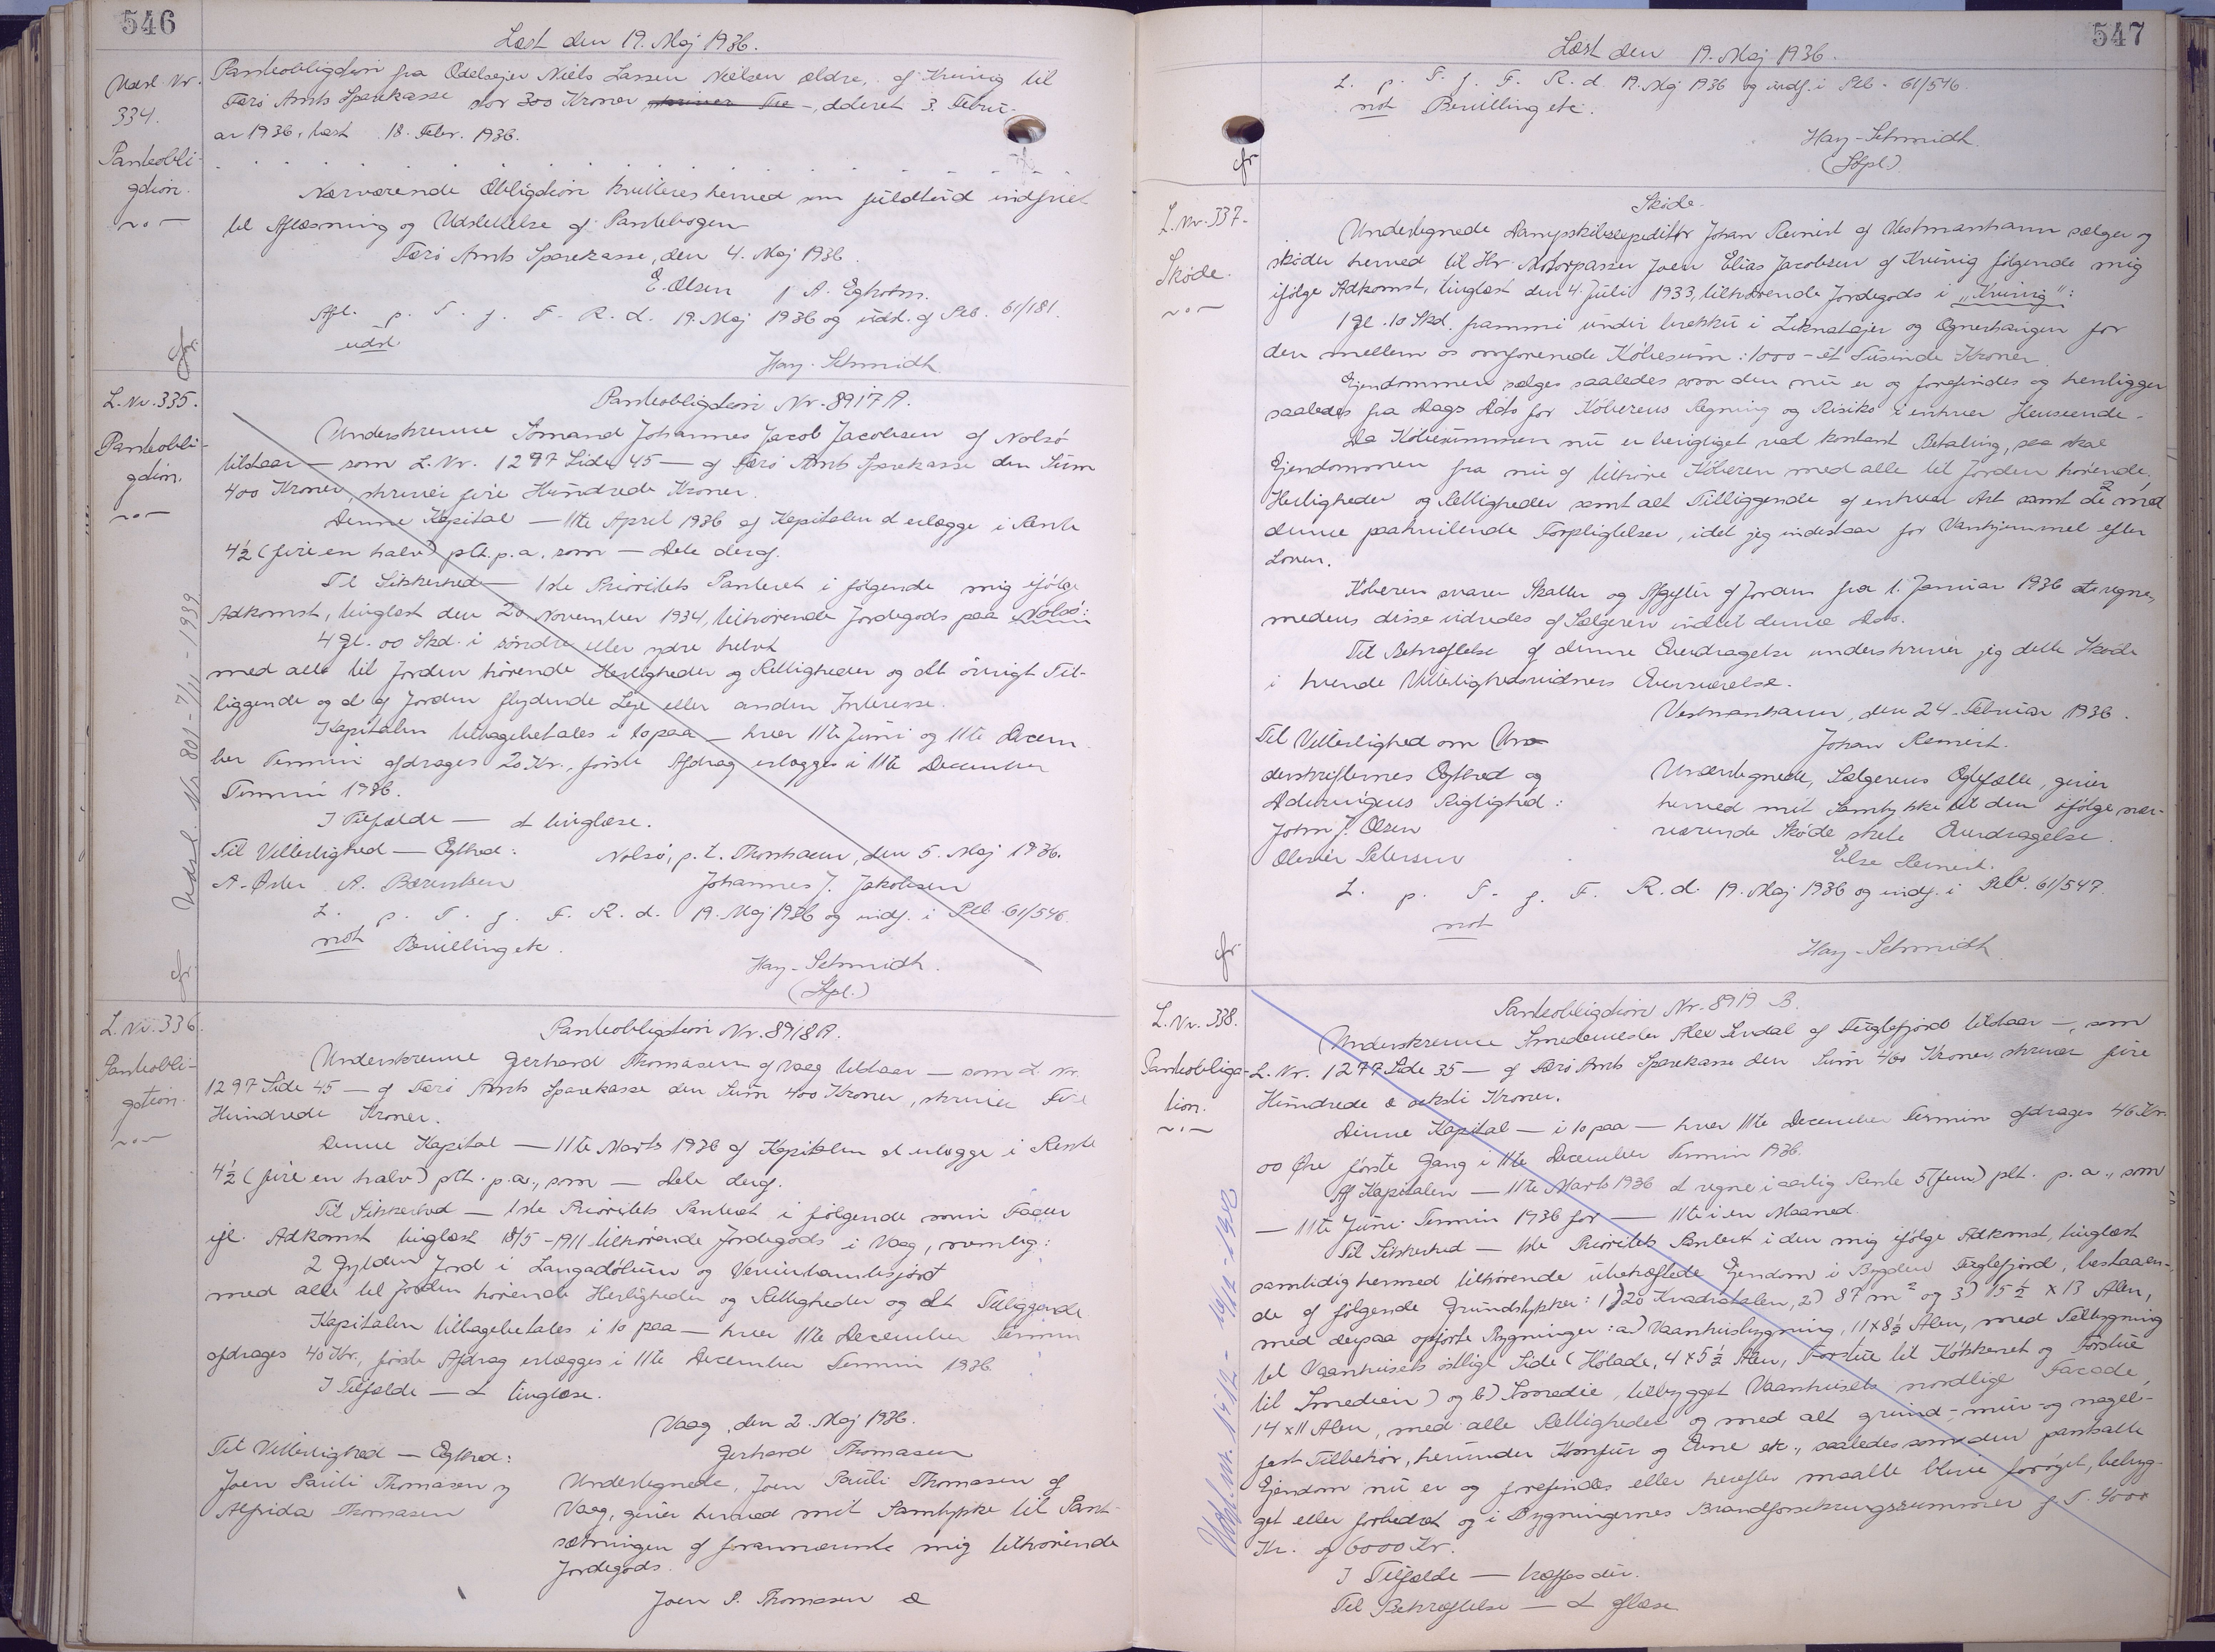 546
Læst den 19. Maj 1936.
Udsl. Nr.
334.
Panteobli-
gation.
Panteobligation fra Odelsejer Niels Lassen Nielsen ældre, af Kvivig til
Færø Amts Sparekasse stor 300 Kroner, dateret 3. Febru-
ar 1936, læst 18. Febr. 1936.
Nærværende Obligation kvitteres herved som fuldtud indfriet
til Aflæsning og Udslettelse af Pantebogen
Færø Amts Sparekasse, den 4. Maj 1936.
E. Olsen / A. Egholm.
Afl. p. T. f. F. R. d. 19. Maj 1936 og udsl. af Ptb. 61/181.
udsl.
Hay-Schmidt
L. Nr. 335.
Panteobli-
gation.
Udsl. Nr. 801 - 7/11 - 1939
Panteobligation Nr. 8917 A.
Underskrevne Sømand Johannes Jacob Jacobsen af Nolsø
tilstaar — som L. Nr. 1297 Side 45 — af Færø Amts Sparekasse den Sum
400 Kroner, skriver fire Hundrede Kroner.
Denne Kapital — 11te April 1936 af Kapitalen at erlægge i Rente
4½ (fire en halv) pCt. p.a., som — Dele deraf.
Til Sikkerhed — 1ste Prioritets Panteret i følgende mig ifølge
Adkomst, tinglæst den 20 November 1934, tilhørende Jordegods paa Nolsø:
4 Gl. 00 Skd. i søndre eller ydre helvt
med alle til Jorden hørende Herligheder og Rettigheder og alt øvrigt Til-
liggende og al af Jorden flydende Leje eller anden Interesse.
Kapitalen tilbagebetales i to paa — hver 11te Juni og 11te Decem-
ber Termin afdrages 20 Kr., første Afdrag erlægges i 11te December
Termin 1936.
I Tilfælde — at tinglæse.
Til Vitterlighed — Egthed: Nolsø, p. t. Thorshavn, den 5. Maj 1936.
A. Bærentsen Johannes J. Jakobsen
L. p. T. f. F. R. d. 19. Maj 1936 og indf. i Ptb 61/546.
not Bevilling etc.
Hay-Schmidt.
(Stpl.)
L. Nr. 336.
Panteobli-
gation.
Panteobligation Nr. 8918 A.
Underskrevne Gerhard Thomasen af Vaag tilstaar — som L. Nr.
1297 Side 45 — af Færø Amts Sparekasse den Sum 400 Kroner, skriver Fire
Hundrede Kroner.
Denne Kapital — 11te Marts 1936 af Kapitalen at erlægge i Rente
4½ (fire en halv) pCt. p.a., som — Dele deraf.
Til Sikkerhed — 1ste Prioritets Panteret i følgende min Fader
ifl. Adkomst tinglæst 18/5 - 1911 tilhørende Jordegods i Vaag, nemlig:
2 Gylden Jord i
med alle til Jorden hørende Herligheder og Rettigheder og alt Tilliggende
Kapitalen tilbagebetales i to paa — hver 11te December Termin
afdrages 40 Kr., første Afdrag erlægges i 11te December Termin 1936.
I Tilfælde — at tinglæse.
Vaag, den 2. Maj 1936.
Til Vitterlighed — Egthed: Gerhard Thomasen
Joen Pauli Thomasen og Undertegnede, Joen Pauli Thomasen af
Alfrida Thomasen Vaag, giver herved mit Samtykke til Pant-
sætningen af forannævnte mig tilhørende
Jordegods.
Joen P. Thomasen
547
Læst den 19. Maj 1936.
L. p. T. f. F. R. d. 19. Maj 1936 og indf. i Ptb. 61/546.
not Bevilling etc.
Hay-Schmidt.
(Stpl.)
L. Nr. 337.
Skøde.
Skøde.
Undertegnede Dampskibsexpeditør Johan Reinert af Vestmanhavn sælger og
skøder herved til Hr. Motorpasser Joen Elias Jacobsen af Kvivig følgende mig
ifølge Adkomst, tinglæst den 4. Juli 1933, tilhørende Jordegods i „Kvivig":
1 Gl. 10 Skd. frammi under brekku i og for
den mellem os omforenede Købesum: 1000 - et Tusinde Kroner.
Ejendommen sælges saaledes som den nu er og forefindes og henligger
saaledes fra Dags Dato for Køberens Regning og Risiko i enhver Henseende.
Da Købesummen nu er berigtiget ved kontant Betaling, saa skal
Ejendommen fra nu af tilhøre Køberen med alle til Jorden hørende
Herligheder og Rettigheder samt alt Tilliggende af enhver Art samt de med
denne paahvilende Forpligtelser, idet jeg indestaar for Vanhjemmel efter
Loven.
Køberen svarer Skatter og Afgifter af Jorden fra 1. Januar 1936 at regne,
medens disse udredes af Sælgeren indtil denne Dato.
Til Bekræftelse af denne Overdragelse underskriver jeg dette Skøde
i tvende Vitterlighedsvidners Overværelse.
Vestmanhavn, den 24. Februar 1936.
Til Vitterlighed om Un- Johan Reinert.
derskrifternes Ægthed og Undertegnede, Sælgerens Ægtefælle, giver
Dateringens Rigtighed: herved mit Samtykke til den ifølge nær-
John J. Olsen værende Skøde skete Overdragelse.
Oliver Petersen Else Reinert.
L. p. T. f. F. R. d. 19. Maj 1936 og indf. i Ptb. 61/547.
not
Hay-Schmidt
L. Nr. 338.
Panteobliga-
tion.
Panteobligation Nr. 8919 B.
Underskrevne Smedemester Alex Lindal af Fuglefjord tilstaar —, som
L. Nr. 1277 Side 35 — af Færø Amts Sparekasse den Sum 460 Kroner, skriver fire
Hundrede & seksti Kroner.
Denne Kapital — i to paa — hver 11te December Termin afdrages 46 Kr.
00 Øre første Gang i 11te December Termin 1936.
Af Kapitalen — 11te Marts 1936 at regne i aarlig Rente 5 (fem) pCt. p.a., som
— 11te Juni Termin 1936 for — 11te i en Maaned.
Til Sikkerhed — 1ste Prioritets Panteret i den mig ifølge Adkomst, tinglæst
samtidig hermed tilhørende ubehæftede Ejendom i Bygden Fuglefjord, bestaaen-
de af følgende Grundstykker: 1) 20 Kvadratalen, 2) 87 m² og 3) 15½ x 13 Alen,
med derpaa opførte Bygninger: a) Vaanhusbygning, 11 x 8½ Alen, med Tilbygning
til Vaanhusets østlige Side (Hølade, 4 x 5½ Alen, Forstue til Køkkenet og Forstue
til Smedien) og b) Smedie, tilbygget Vaanhusets nordlige Facade,
14 x 11 Alen, med alle Rettigheder og med alt grund-, mur- og nagel-
fast Tilbehør, herunder Komfur og Ovne etc., saaledes som den pantsatte
Ejendom nu er og forefindes eller herefter maatte blive forøget, bebyg-
get eller forbedret og i Bygningernes Brandforsikringssummer
Kr. og 6000 Kr.
I Tilfælde — træffes der.
Til Bekræftelse — at aflæse